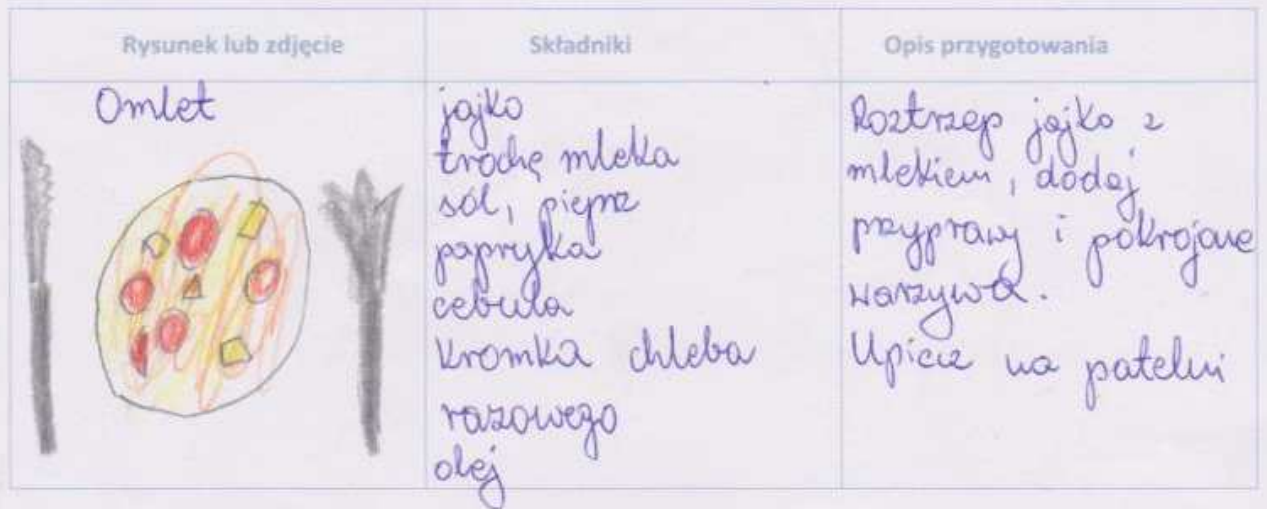 Rysunek lub zdjęcie
Składniki
Opis przygotowania
Omlet
jajko
trochę mleka
sól, pieprz
papryka
cebula
kromka chleba
razowego
olej
Roztrzep jajko z
mlekiem, dodaj
przyprawy i pokrojone
warzywa.
Upiecz na patelni